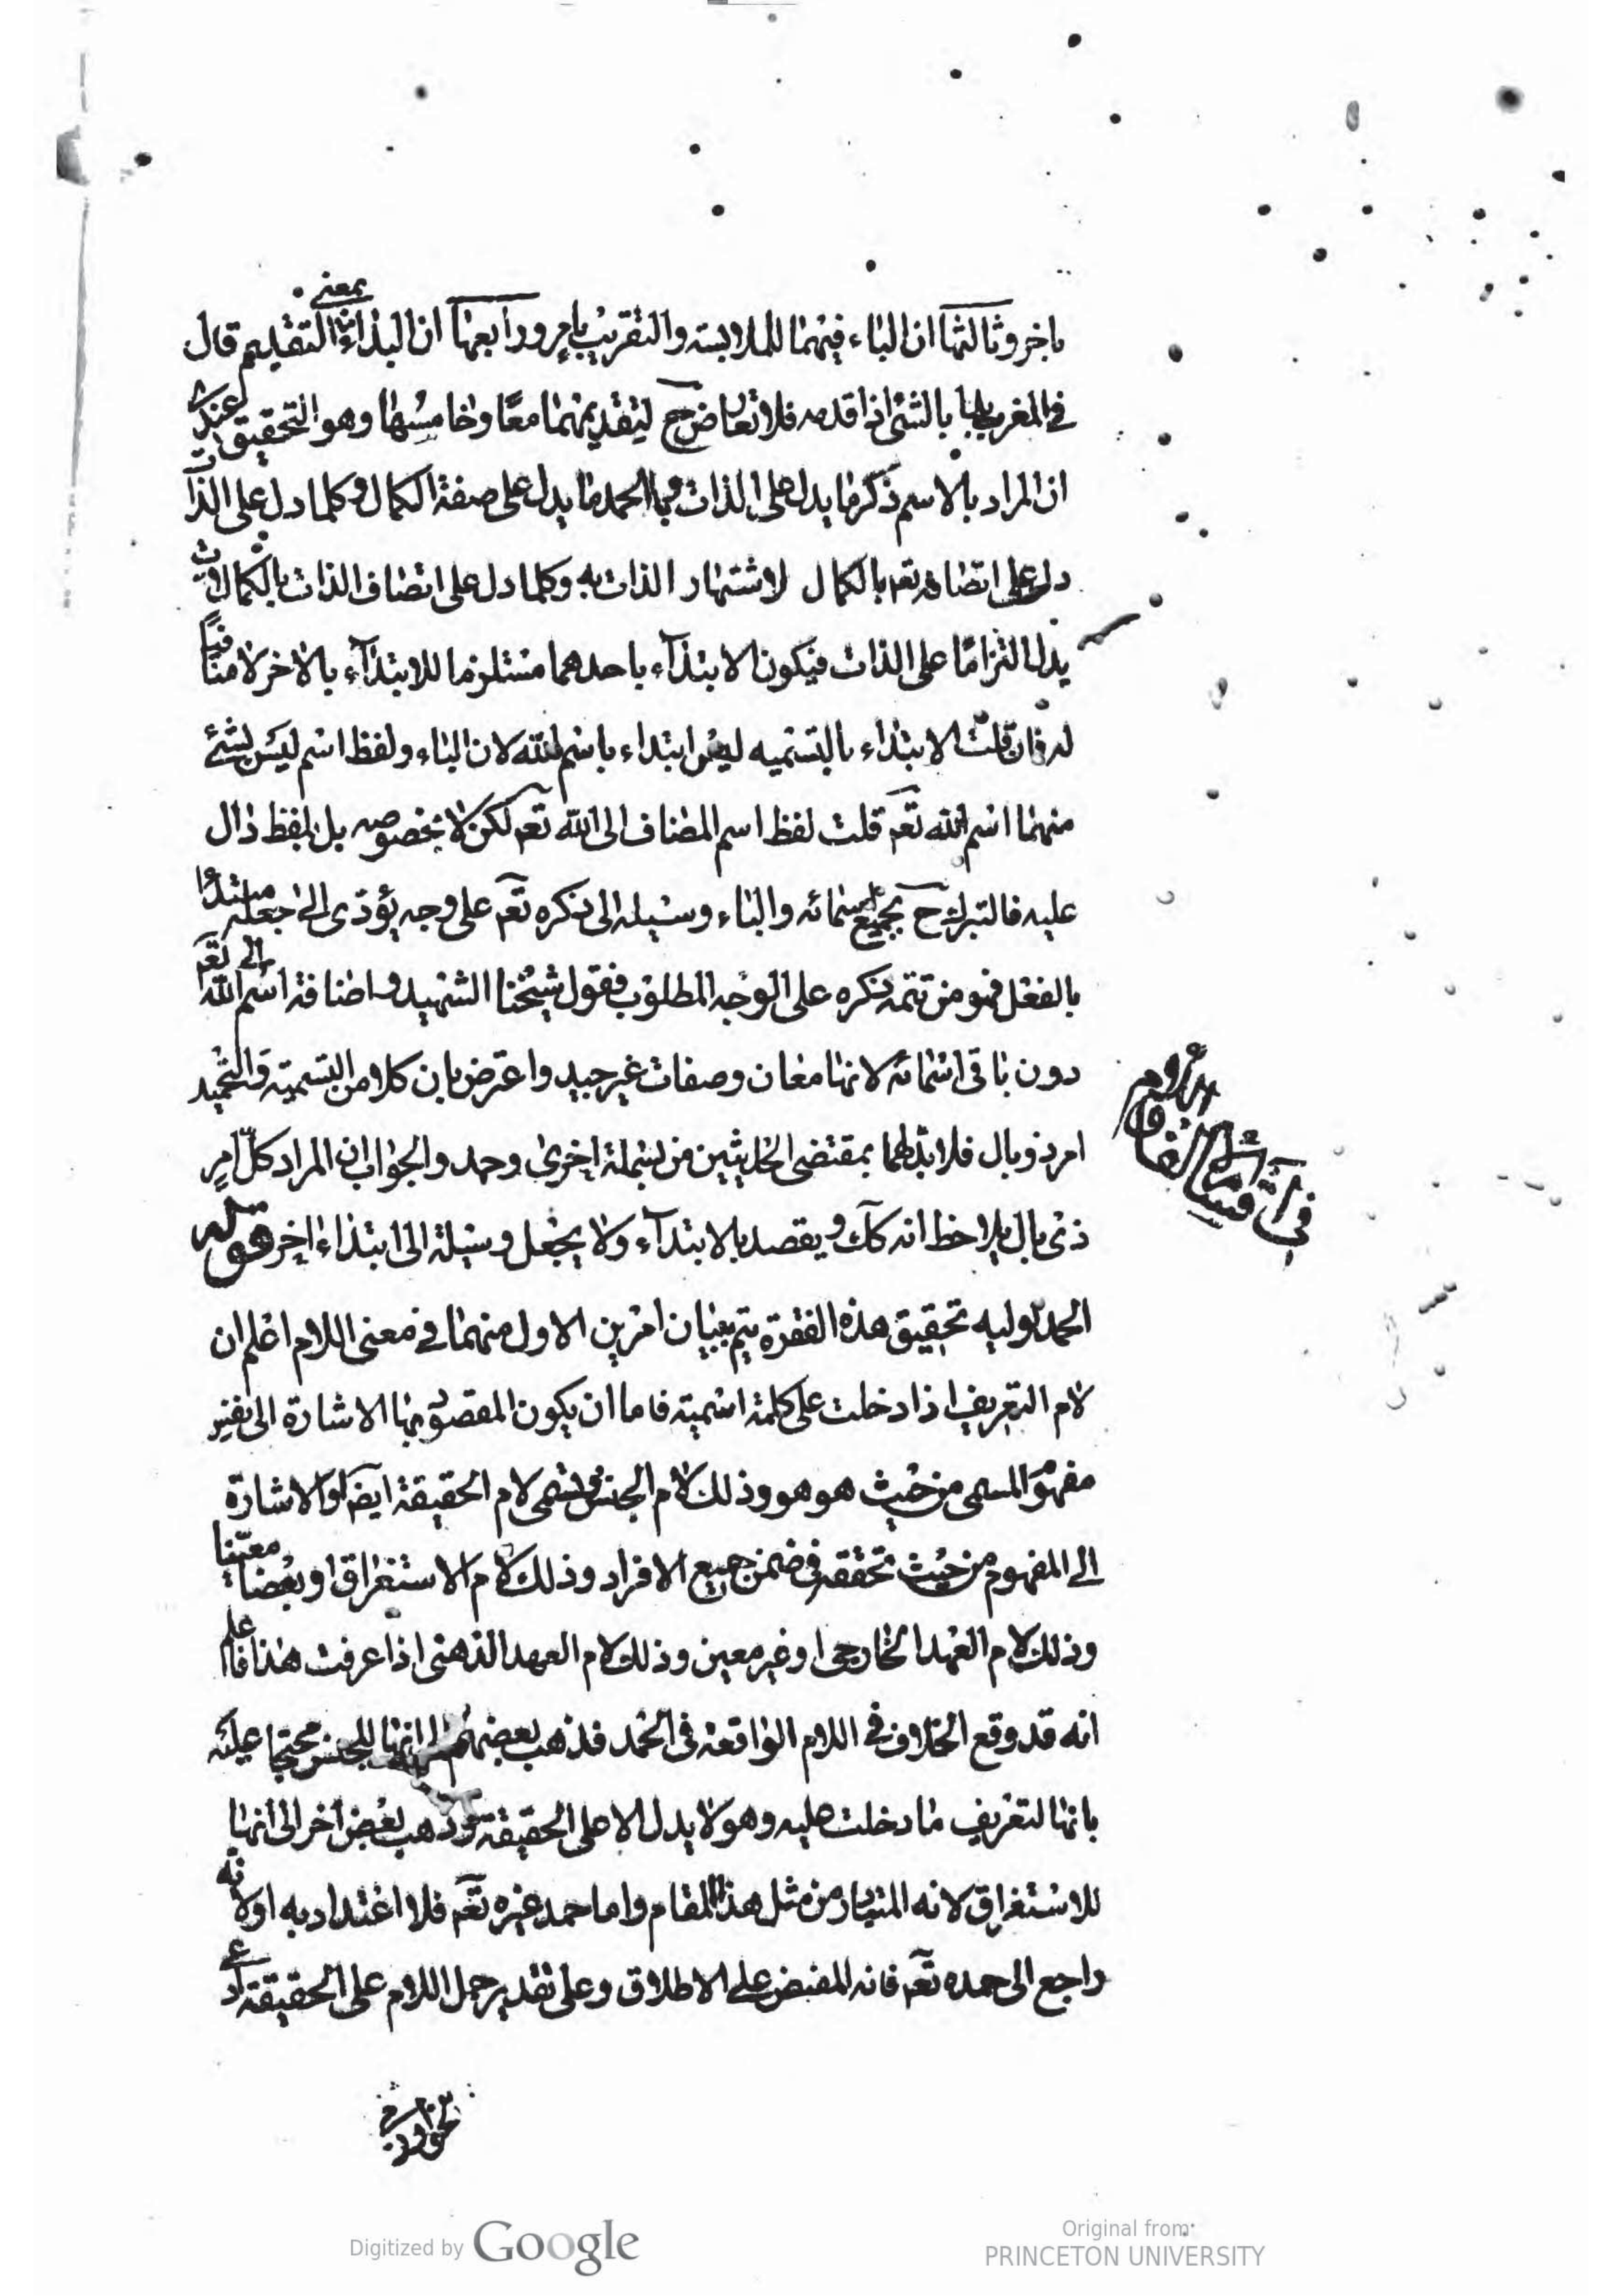 باخر وثالثها ان الباء فيهما للملابسة والتقريب بامر ورابعها ان البداءة بمعنى التقديم قال
في المغرب بدا بالشئ اذا قدمه فلا تعارض ح لتقديمهما معًا وخامسها وهو التحقيق عندى
ان المراد بالاسم ذكر ما يدل على الذات وبالحمد ما يدل على صفة الكمال وكلما دل على الذات
دل على اتصافه تعم بالكمال لاشتهار الذات به وكلما دل على اتصاف الذات بالكمالات
يدل التزامًا على الذات فيكون الابتداء باحدهما مستلزما للابتداء بالاخر لا منافيًا
له فان قلت الابتداء بالتسميه ليس ابتداء باسم الله لان الباء ولفظ اسم ليس بشئ
منهما اسم الله تعم قلت لفظ اسم المضاف الى الله تعم لكن لا بخصوصه بل بلفظ دال
عليه فالتبرك ح بجميع اسمائه والباء وسيله الى ذكره تعم على وجه يؤدى الى جعله مبتدوا
بالفعل فهو من تتمة ذكره على الوجه المطلوب فقول شيخنا الشهيد واضافة اسم الى الله تعم
دون باقى اسمائه لانها معان وصفات غير جيد واعترض بان كلا من التسمية والتحميد
امر ذو بال فلا بد لهما بمقتضى الحديثين من بسملة اخرى وحمد والجواب ان المراد كل امر
ذى بال يلاحظ انه كك ويقصد بالابتداء ولا يجعل وسيلة الى ابتداء اخر قوله
الحمد لوليه تحقيق هذه الفقرة يتم ببيان امرين الاول منهما في معنى اللام اعلم ان
لام التعريف اذا دخلت على كلمة اسمية فاما ان يكون المقصود بها الاشارة الى نفس
مفهوم المسمى من حيث هو هو وذلك لام الجنس وتسمى لام الحقيقة ايضا او الاشارة
الى المفهوم من حيث تحققه في ضمن جميع الافراد وذلك لام الاستغراق او بعضا معينا
وذلك لام العهد الخارجى او غير معين وذلك لام العهد الذهنى اذا عرفت هذا فاعلم
انه قد وقع الخلاف في اللام الواقعة في الحمد فذهب بعضهم الى انها للجنس محتجا عليه
بانها لتعريف ما دخلت عليه وهو لا يدل الا على الحقيقة وذهب بعض اخر الى انها
للاستغراق لانه المتبادر من مثل هذا المقام واما حمد غيره تعم فلا اعتداد به او لانه
راجع الى حمده تعم فانه المفيض على الاطلاق وعلى تقدير حمل اللام على الحقيقة
Digitized by Google
Original from
PRINCETON UNIVERSITY